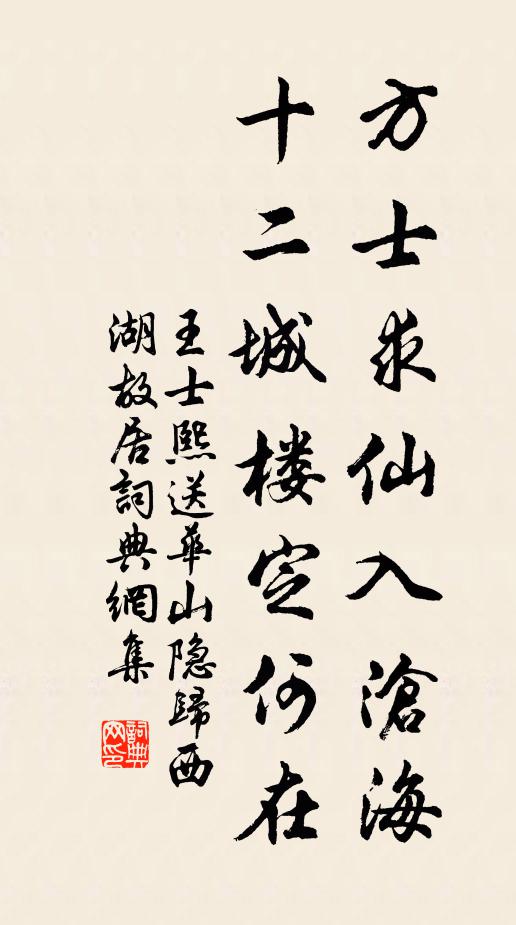 方士求仙入滄海
十二城楼定何在
王士熙送華山隐歸西
湖故居詞典網集
詞典
网印